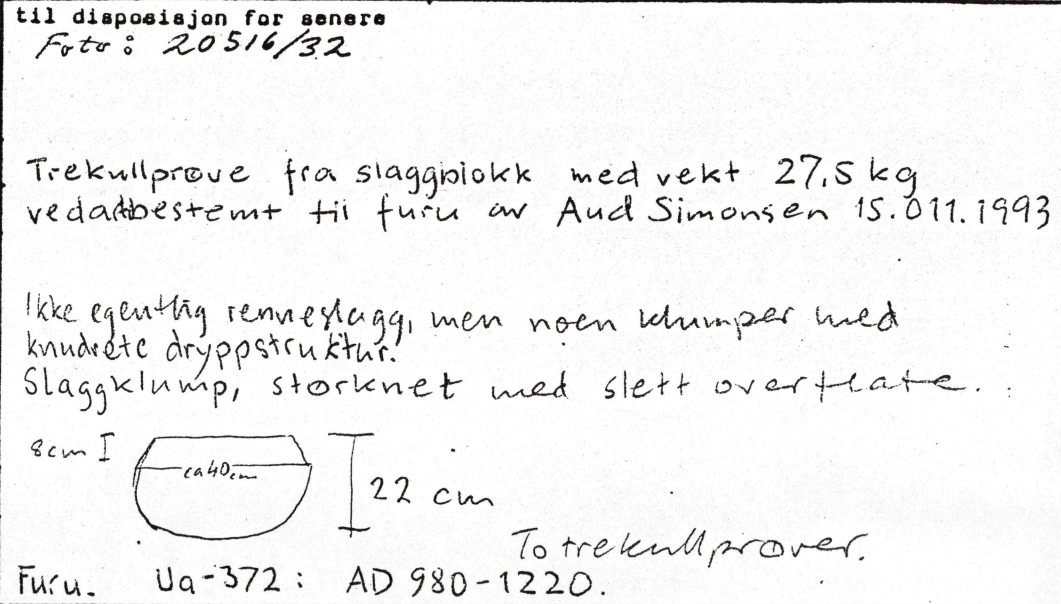 til disposisjon for senere
Foto: 20516/32
Trekullprøve fra slaggblokk med vekt 27,5 kg
vedartbestemt til furu av Aud Simonsen 15.011.1993
Ikke egentlig renneslagg, men noen klumper med
knudrete dryppstruktur.
Slaggklump, størknet med slett overflate.
8cm
ca 40 cm
22 cm
To trekullprøver.
Furu. Ua-372: AD 980-1220.